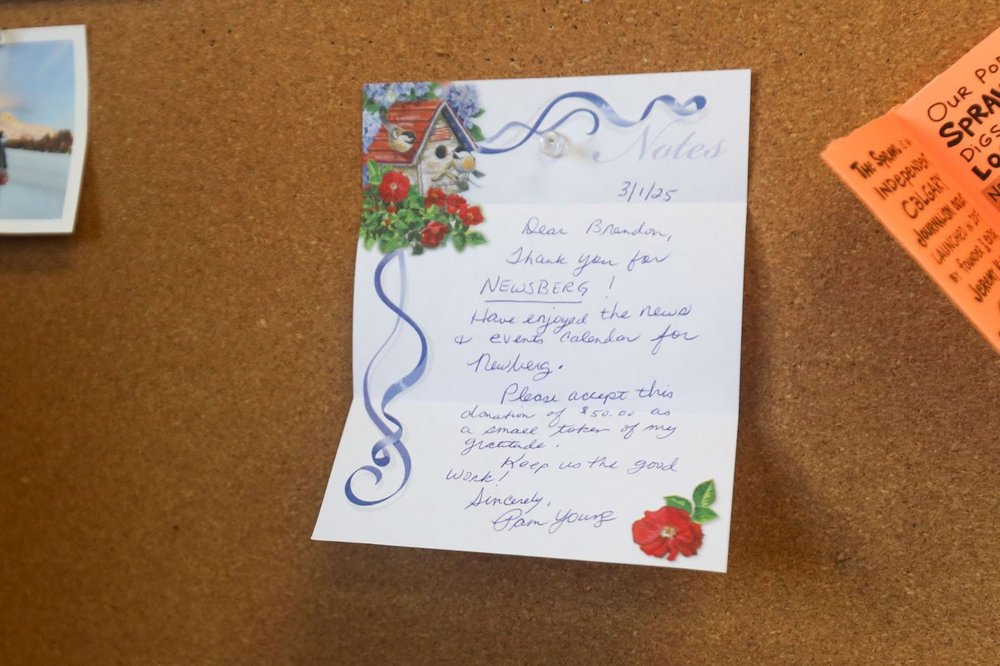 Notes
3/1/25
Dear Brandon,
Thank you for
NEWSBERG!
Have enjoyed the news
& events calendar for
Newberg.
Please accept this
donation of $50.00 as
a small token of my
gratitude.
Keep us the good
work!
Sincerely,
Pam Young
OUR POD
SPRAW
DIGS
LO
THE SPRAWL is
INDEPENDEN
CALGARY
JOURNALISM
LAUNCHED IN
BY FOUNDER &
JEREMY